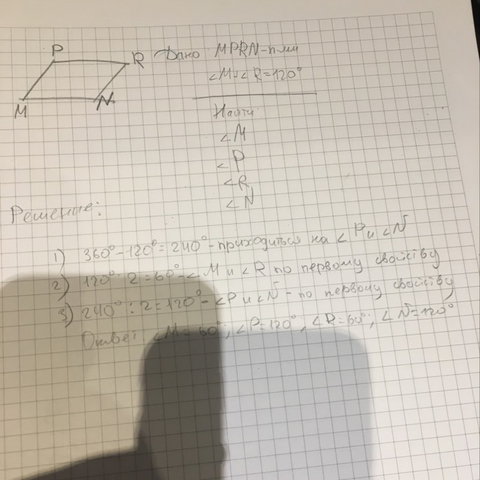 P
R
M
N
Дано MPRN-п-мм
∠M и ∠R=120°
Найти
∠M
∠P
∠R
∠N
Решение:
1) 360°-120°=240°-приходиться на ∠P и ∠N
2) 120°:2=60°-∠M и ∠R по первому свойству
3) 240°:2=120°-∠P и ∠N-по первому свойству
Ответ: ∠M=60°; ∠P=120°, ∠R=60°; ∠N=120°